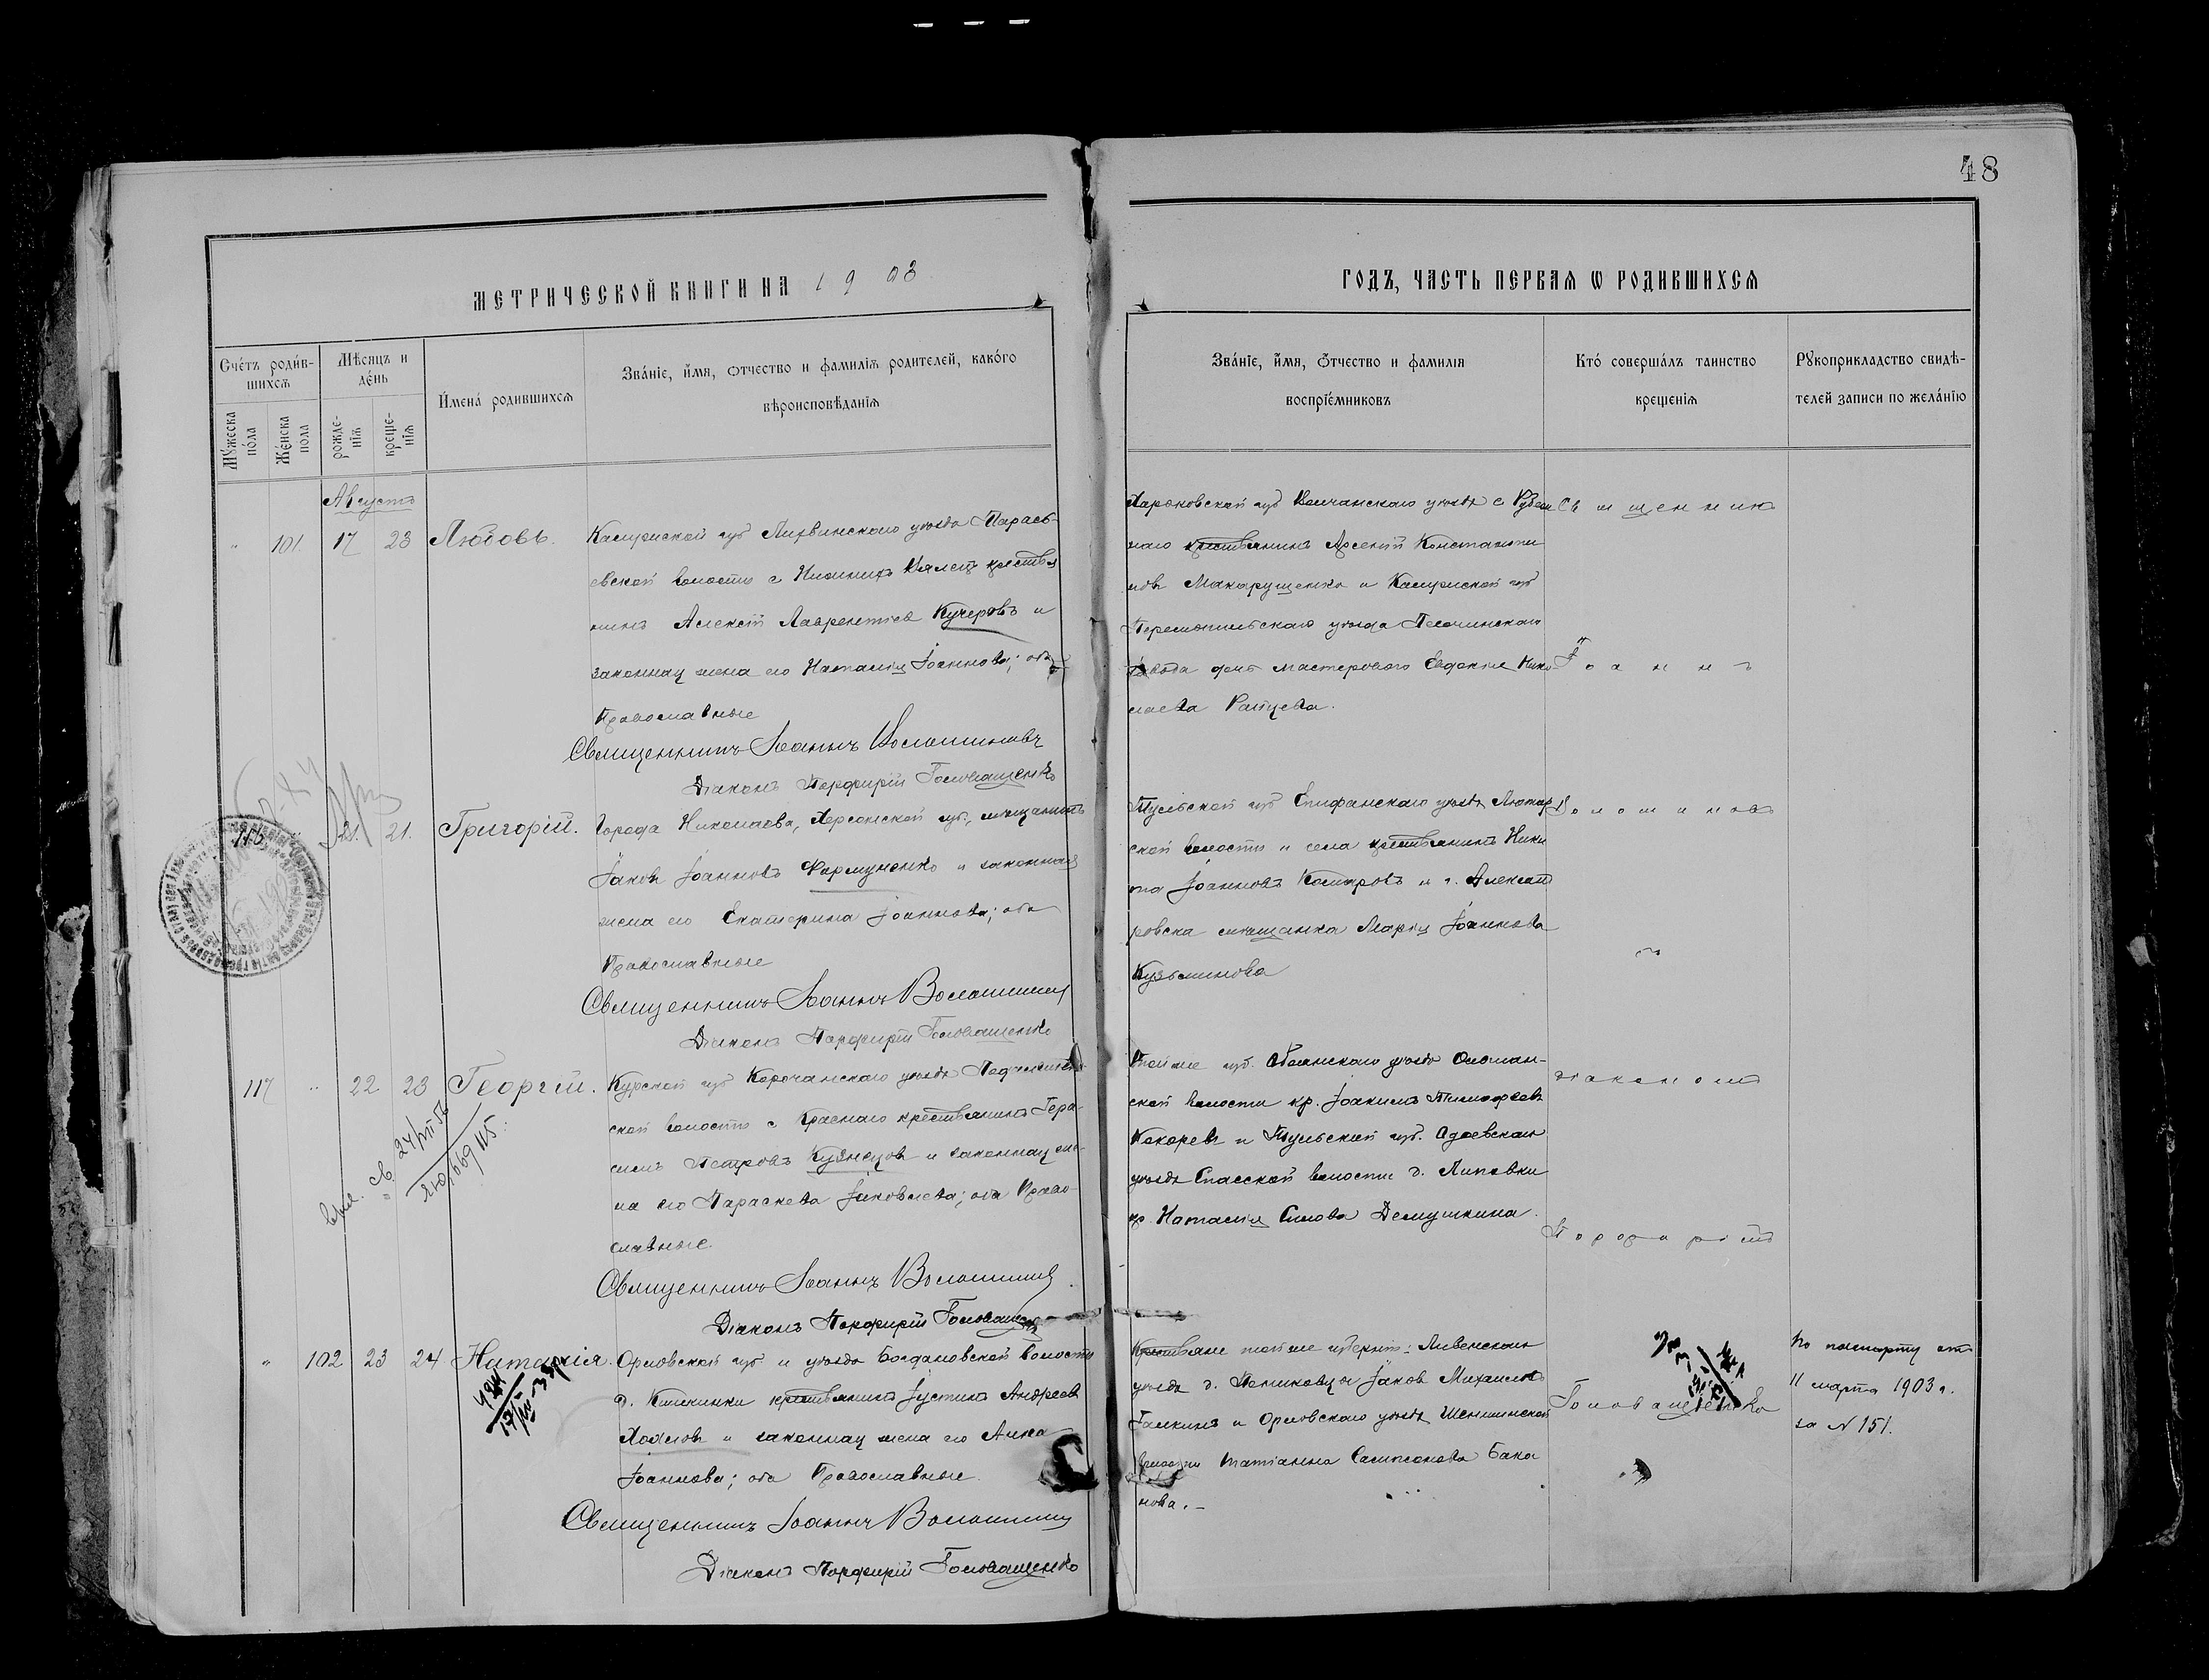 48
МЕТРИЧЕСКОЙ КНИГИ НА 1903
ГОДЪ, ЧАСТЬ ПЕРВАЯ Ѡ РОДИВШИХСЯ
Счетъ родив-
шихся
Мужеска
пола
Женска
пола
Мѣсяцъ и
день
рожде-
нія
креще-
нія
Имена родившихся
Званіе, имя, отчество и фамилія родителей, какого
вѣроисповѣданія
Званіе, имя, отчество и фамилія
воспріемниковъ
Кто совершалъ таинство
крещенія
Рукоприкладство свидѣ-
телей записи по желанію
Августъ
" 101 17 23 Любовь.
Калужской губ Лихвинскаго уѣзда
евской волости с крестья
нинъ Алексій Лаврентіевъ Кучеровъ и
законная жена его Наталія Іоаннова; оба
Православные
Священникъ Іоаннъ Волошиновъ
Діаконъ Порфирій Головащенко
Харьковской губ Волчанскаго уѣзда с
наго крестьянинъ Арсеній Константи
новъ Макарущенко и Калужской губ
Перемышльскаго уѣзда Песочинскаго
завода дочь мастероваго Евдокія Нико
лаева
Священникъ
Іоаннъ
Волошиновъ
діакономъ
Порфиріемъ
Головащенко
116 " 21. 21. Григорій.
Города Николаева, Херсонской губ, мѣщанинъ
Іаковъ Іоанновъ и законная
жена его Екатерина Іоаннова; оба
Православные
Священникъ Іоаннъ Волошиновъ
Діаконъ Порфирій Головащенко
Тульской губ Епифанскаго уѣзда
ской волости и села крестьянинъ Ники
та Іоанновъ Комаровъ и г. Александ
ровска мѣщанка Марія Іоаннова
Кузьминова
117 " 22 23 Георгій.
Курской губ Корочанскаго уѣзда
ской волости с Краснаго крестьянинъ Гера-
симъ Петровъ Кузнецовъ и законная же-
на его Параскева Іаковлева; оба Право-
славные
Священникъ Іоаннъ Волошиновъ
Діаконъ Порфирій Головащенко
Той же губ. Обоянскаго уѣзда
ской волости кр. Іоакимъ Тимофеевъ
Кокоревъ и Тульской губ. Одоевскаго
уѣзда Спасской волости д. Липовки
кр. Наталія Силова Демушкина.
" 102 23 24 Наталія.
Орловской губ и уѣзда Богдановской волости
д. крестьянинъ Іустинъ Андреевъ
Хохловъ и законная жена его Анна
Іоаннова; оба Православные.
Священникъ Іоаннъ Волошиновъ
Діаконъ Порфирій Головащенко
Крестьяне той же губерніи: Ливенскаго
уѣзда д. Іаковъ Михаиловъ
Галкинъ и Орловскаго уѣзда
волости Татіанна Сампсонова Бака
нова. –
По паспорту отъ
11 марта 1903 г.
за N 151.